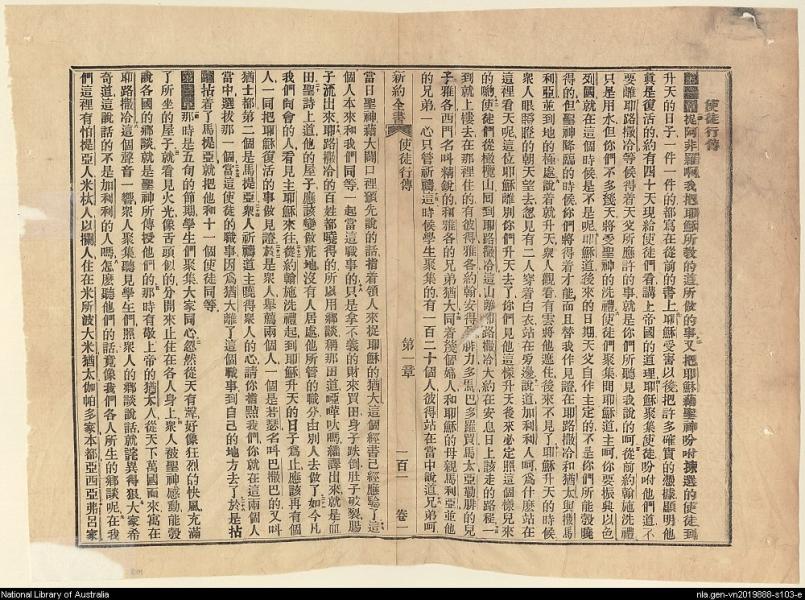 使徒行傳
提阿非羅啊我把耶穌所教的道所做的事又把耶穌藉聖神吩咐揀選的使徒到
升天的日子一件一件的都寫在從前的書上耶穌受害以後把許多確實的憑據顯明他
眞是復活的約有四十天現給使徒們看講上帝國的道理耶穌聚集使徒吩咐他們道不
要離耶路撒冷等候得着天父所應許的事就是你們所聽見我說的呵從前約翰施洗禮
只是用水但你們不多幾天將受聖神的洗禮使徒們聚集問耶穌道主呵你要振興以色
列國就在這個時候是不是呢耶穌道後來的日期天父自作主定的不是你們所能彀曉
得的但聖神降臨的時候你們將得着才能而且替我作見證在耶路撒冷和猶太與撒馬
利亞並到地的極處說着就升天衆人觀看有雲將他遮住後來不見了耶穌升天的時候
衆人眼睜睜的朝天望去忽見有二人穿着白衣站在旁邊說道加利利人呵爲什麽站在
這裡看天呢這位耶穌離別你們升天去了你們見他這樣升天後來必定照這個樣兒來
的喲使徒們從橄欖山回到耶路撒冷這山離耶路撒冷大約在安息日上該走的路程一
到就上樓去在那裡住的有彼得雅各約翰安得烈腓力多馬巴多羅買馬太亞勒腓的兒
子雅各西門名叫精銳的和雅各的兄弟猶大同着幾個婦人和耶穌的母親馬利亞並他
的兄弟一心只管祈禱這時候學生聚集的有一百二十個人彼得站在當中說道兄弟呵
新約全書 使徒行傳 第一章 一百一 卷一
當日聖神藉大闢口裡預先說的話指着領人來捉耶穌的猶大這個經書已經應驗了這
個人本來和我們同等一起當這職事的只是拿不義的財來買田身子跌倒肚子破裂腸
子流出來耶路撒冷的百姓都曉得的所以用鄉談稱那田道亞革大馬繙譯出來就是血
田聖詩上道他的屋子應該變做荒地沒有人居處他所管的職分由別人去做了如今凡
我們向會的人看見主耶穌來往從約翰施洗禮起到耶穌升天的日子爲止應該再有個
人一同把耶穌復活的事做見證於是衆人舉薦兩個人一個是若瑟名叫巴撒巴的又叫
猶士都第二個是馬提亞衆人祈禱道主曉得衆人的心請你指點我們你就在這兩個人
當中選拔那一個當這使徒的職事因爲猶大離了這個職事到自己的地方去了於是拈
鬮拈着了馬提亞就把他和十一個使徒同等
那時是五旬的節期學生們聚集大家同心忽然從天有聲好像狂烈的快風充滿
了所坐的屋子就看見火光像舌頭似的分開來止住在各人身上衆人被聖神感動能彀
說各國的鄉談就是聖神所傳授他們的那時有敬上帝的猶太人從天下萬國面來寓在
耶路撒冷這個聲音一響衆人聚集聽見學生們照衆人的鄉談說話就詫異得狠大家希
奇道這說話的不是加利利的人嗎怎麽聽他們的話竟像我們各人所生的鄉談呢在我
們這裡有怕提亞人米杕人以攔人住在米所波大米猶太伽帕多家本都亞西亞弗呂家
National Library of Australia
nla.gen-vn2019888-s103-e